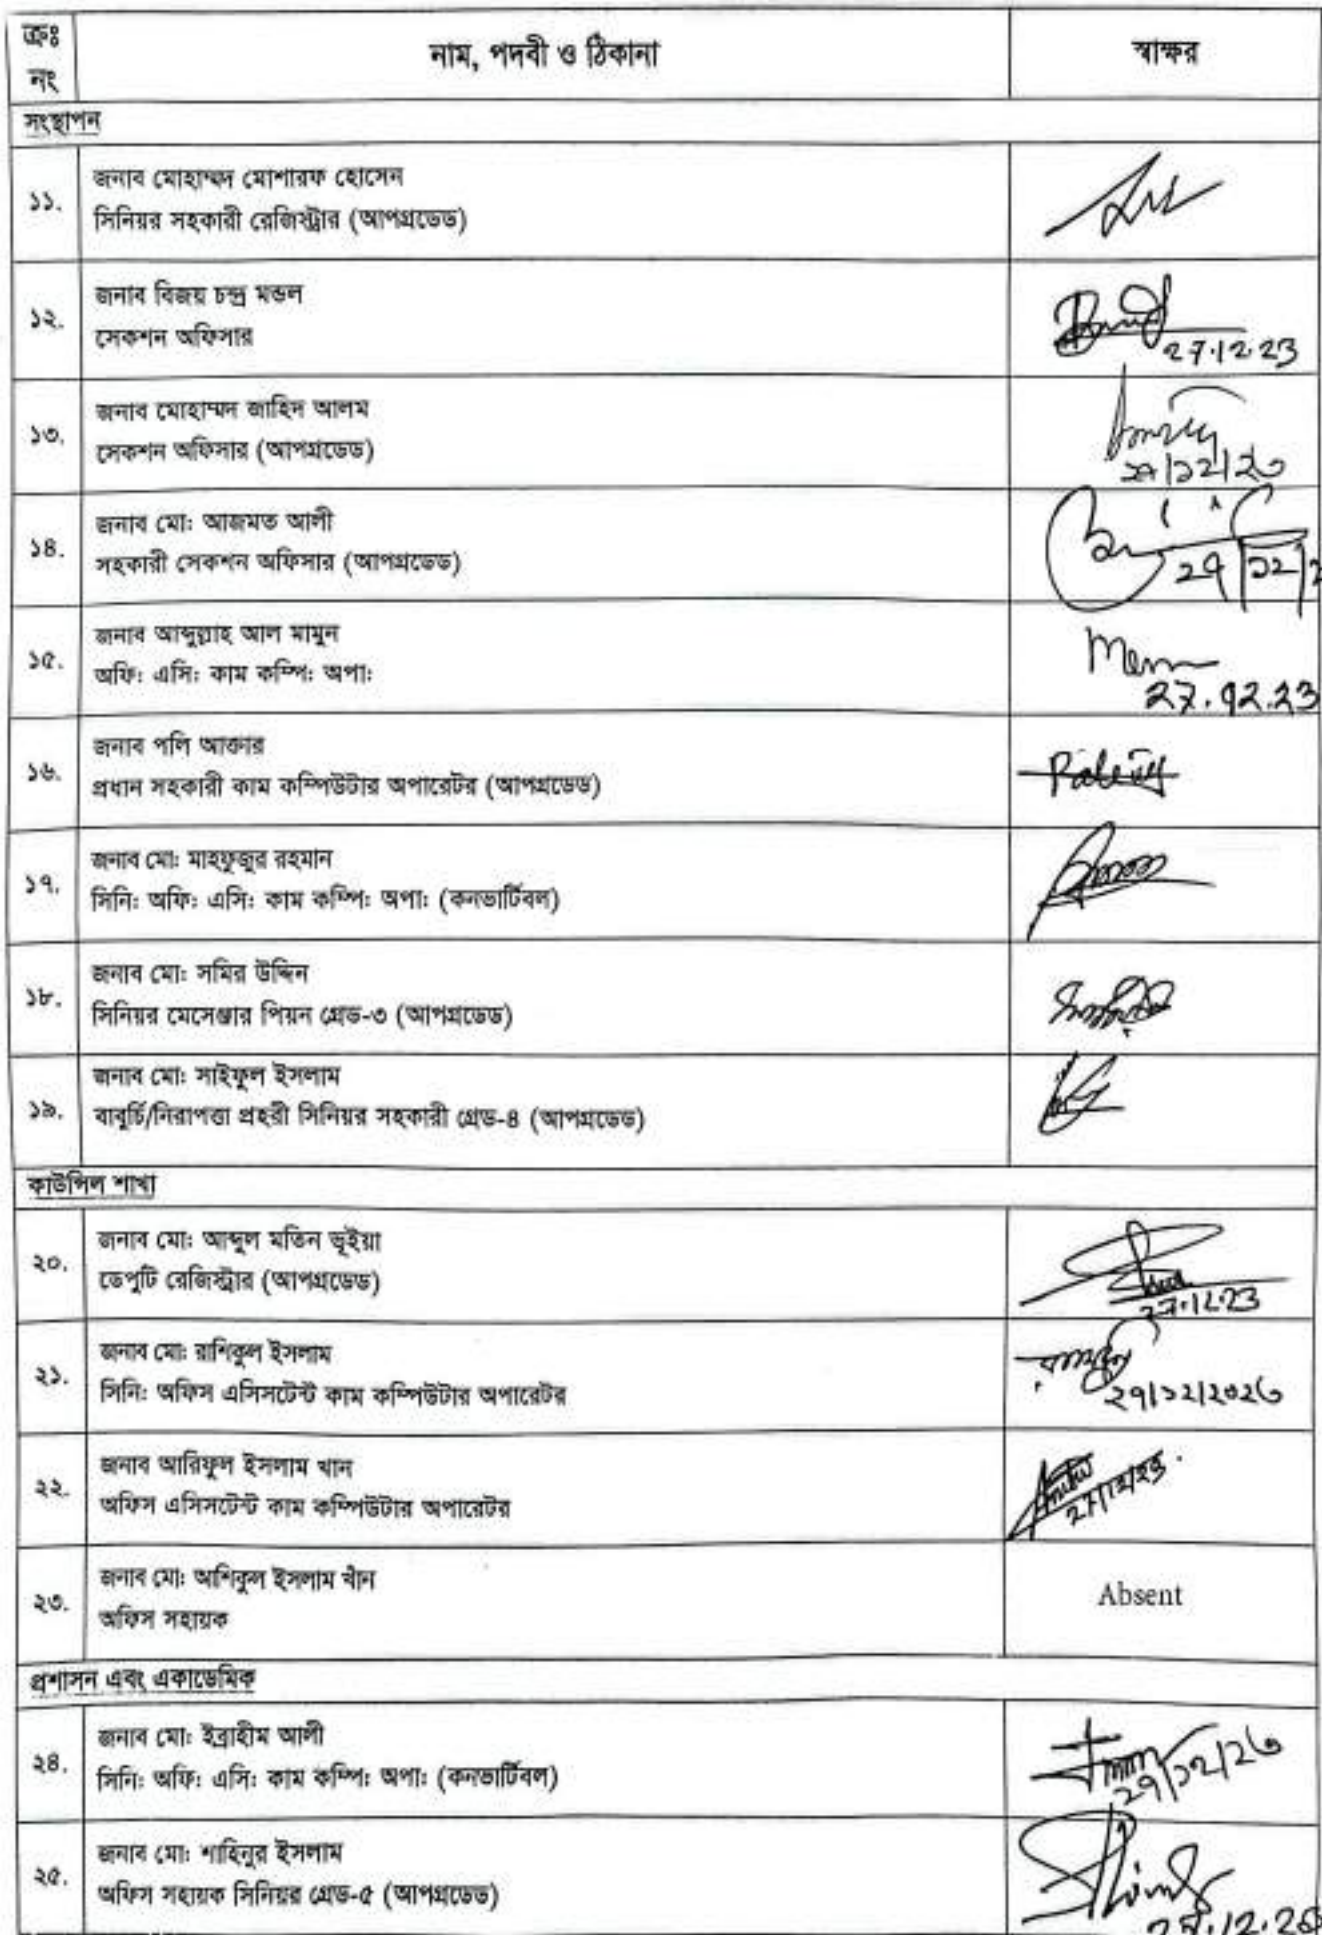 ক্রঃ
নং
নাম, পদবী ও ঠিকানা
স্বাক্ষর
সংস্থাপন
১১.
জনাব মোহাম্মদ মোশারফ হোসেন
সিনিয়র সহকারী রেজিস্ট্রার (আপগ্রডেড)
১২.
জনাব বিজয় চন্দ্র মন্ডল
সেকশন অফিসার
27.12.23
১৩.
জনাব মোহাম্মদ জাহিদ আলম
সেকশন অফিসার (আপগ্রডেড)
২৭/১২/২৩
১৪.
জনাব মো: আজমত আলী
সহকারী সেকশন অফিসার (আপগ্রডেড)
২৭/১২/২
১৫.
জনাব আব্দুল্লাহ আল মামুন
অফি: এসি: কাম কম্পি: অপা:
27.12.23
১৬.
জনাব পলি আক্তার
প্রধান সহকারী কাম কম্পিউটার অপারেটর (আপগ্রডেড)
১৭.
জনাব মো: মাহফুজুর রহমান
সিনি: অফি: এসি: কাম কম্পি: অপা: (কনভার্টিবল)
১৮.
জনাব মো: সমির উদ্দিন
সিনিয়র মেসেঞ্জার পিয়ন গ্রেড-৩ (আপগ্রডেড)
১৯.
জনাব মো: সাইফুল ইসলাম
বাবুর্চি/নিরাপত্তা প্রহরী সিনিয়র সহকারী গ্রেড-৪ (আপগ্রডেড)
কাউন্সিল শাখা
২০.
জনাব মো: আব্দুল মতিন ভূইয়া
ডেপুটি রেজিস্ট্রার (আপগ্রডেড)
27.12.23
২১.
জনাব মো: রাশিকুল ইসলাম
সিনি: অফিস এসিসটেন্ট কাম কম্পিউটার অপারেটর
২৭/১২/২০২৩
২২.
জনাব আরিফুল ইসলাম খান
অফিস এসিসটেন্ট কাম কম্পিউটার অপারেটর
27/12/23.
২৩.
জনাব মো: আশিকুল ইসলাম খাঁন
অফিস সহায়ক
Absent
প্রশাসন এবং একাডেমিক
২৪.
জনাব মো: ইব্রাহীম আলী
সিনি: অফি: এসি: কাম কম্পি: অপা: (কনভার্টিবল)
২৭/১২/২৩
২৫.
জনাব মো: শাহিনুর ইসলাম
অফিস সহায়ক সিনিয়র গ্রেড-৫ (আপগ্রডেড)